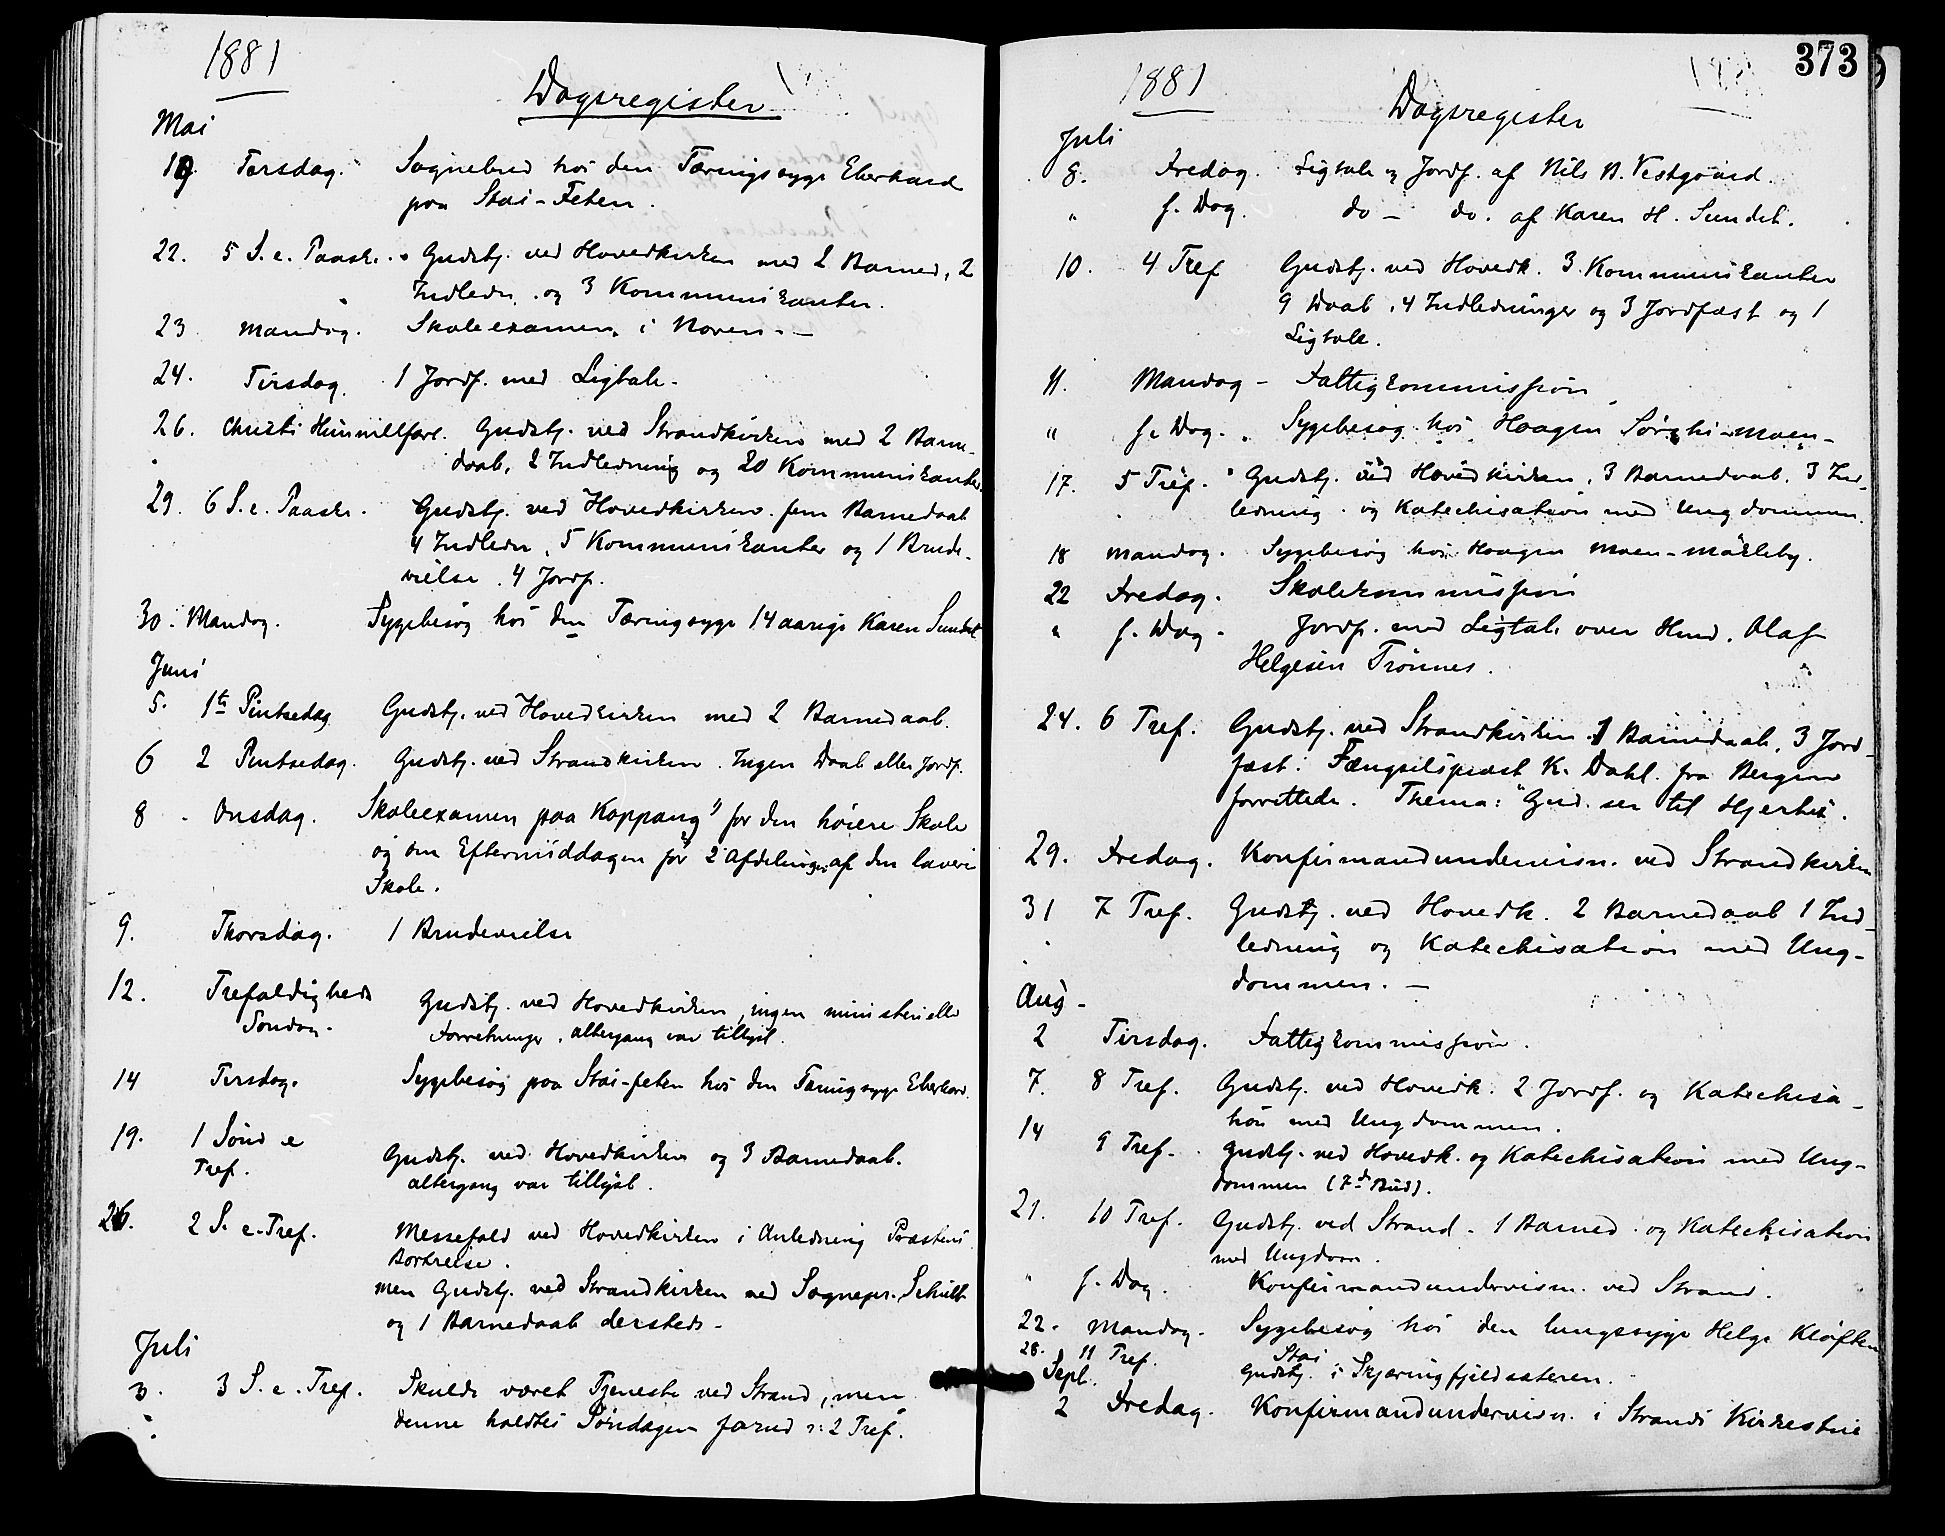 1881
Dagsregister
Mai
19. Torsdag. Sognebud hos den Tæringssyge Eberhard
paa Stai-Feten.
22. 5 S. e. Paaske. Gudstj. ved Hovedkirken med 2 Barned, 2
Indledn. og 3 Kommunikanter.
23. Mandag. Skoleexamen i Noren. -
24. Tirsdag. 1 Jordf. med Ligtale.
26. Christi Himmelfart. Gudstj. ved Strandkirken med 2 Barne-
daab, 2 Indledning og 20 Kommunikanter.
29. 6 S. e. Paaske. Gudstj. ved Hovedkirken. fem Barnedaab
4 Indledn, 5 Kommunikanter og 1 Brude-
vielse. 4 Jordf.
30. Mandag. Sygebesøg hos den Tæringsyge 14 aarige Karen Sundet
Juni
5. 1te Pintsedag Gudstj. ved Hovedkirken med 2 Barnedaab.
6 2 Pintsedag. Gudstj. ved Strandkirken. Ingen Daab eller Jordf.
8 Onsdag. Skoleexamen paa Koppang for den høiere Skole
og om Eftermiddagen for 2 Afdelinger af den lavere
Skole.
9. Thorsdag. 1 Brudevielse
12. Trefoldigheds Gudstj. ved Hovedkirken, ingen ministerielle
Søndag. Forretninger. altergang var tillyst.
14 Tirsdag. Sygebesøg paa Stai-feten hos den Tæringsyge Eberhard.
19. 1 Sønd e Gudstj. ved Hovedkirken og 3 Barnedaab.
Tref. altergang var tillyst.
26. 2 S. e. Tref. Messefald ved Hovedkirken i Anledning Præstens
Bortreise.
men Gudstj. ved Strandkirken ved Sognepr. Schult
og 1 Barnedaab dersteds.
Juli
3. 3 S. e. Tref. Skulde været Tjeneste ved Strand, men
denne holdtes Søndagen forud ɔ: 2 Tref.
373
1881
Dagsregister
Juli
8. Fredag. Ligtale og Jordf. af Nils N. Vestgaard.
" s. Dag. do - do. af Karen H. Sundet.
10. 4 Tref Gudstj. ved Hovedk. 3 Kommunikanter
9 Daab, 4 Indledninger og 3 Jordfæst og 1
Ligtale.
11. Mandag - Fattigkommission
" s. Dag. Sygebesøg hos Haagen Moen -
17. 5 Tref. Gudstj. ved Hovedkirken, 3 Barnedaab. 3 Ind-
ledning. og Katechisation med Ungdommen.
18 Mandag. Sygebesøg hos Haagen Moen-Mækleby.
22 Fredag. Skolekommission
" s. Dag. Jordf. med Ligtale over Hmd. Olaf
Helgesen Trønnes.
24. 6 Tref. Gudstj. ved Strandkirken. 1 Barnedaab, 3 Jord-
fæst. Fængselspræst K. Dahl. fra Bergen
forrettede. Thema: "Gud ser til Hjertet".
29. Fredag. Konfirmandundervisn. ved Strandkirken
31 7 Tref. Gudstj. ved Hovedk. 2 Barnedaab 1 Ind-
ledning og Katechisation med Ung-
dommen. -
Aug -
2 Tirsdag. Fattigkommission.
7. 8 Tref. Gudstj. ved Hovedk. 2 Jordf. og Katechisa-
tion med Ungdommen.
14 9 Tref. Gudstj. ved Hovedk. og Katechisation med Ung-
dommen (7de Bud).
21. 10 Tref. Gudstj. ved Strand. 1 Barned. og Katechisation
med Ungdom.
" s. Dag. Konfirmandundervisn. ved Strand.
22. Mandag. Sygebesøg hos den lungesyge Helge Kløften
28. 11 Tref. Gudstj. i Stai Skjæringfjeldsæteren.
Sept.
2 Fredag. Konfirmandundervisn. i Strands Kirkestue